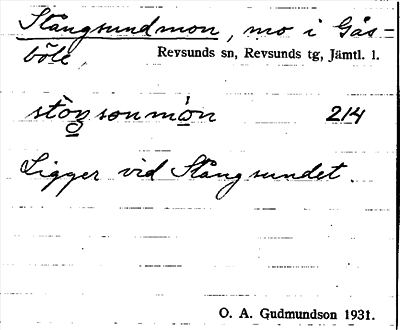 Stångsundmon, mo i Gås-
böle, Revsunds sn, Revsunds tg, Jämtl. l.
stòŋsonmòn 214
Ligger vid Stångsundet.
O. A. Gudmundson 1931.